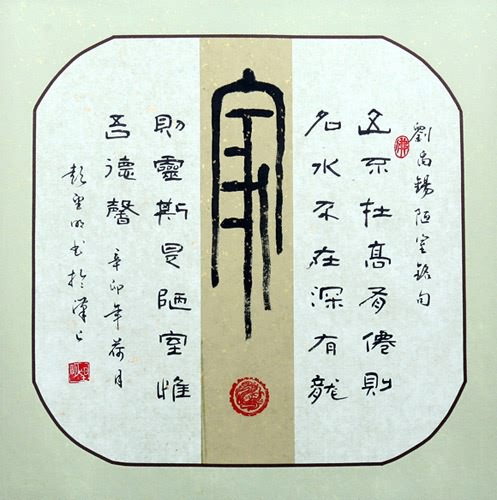 劉禹錫陋室銘句
山不在高有僊則
名水不在深有龍
則靈斯是陋室惟
吾德馨
辛卯年荷月
彭聖明书於漢上